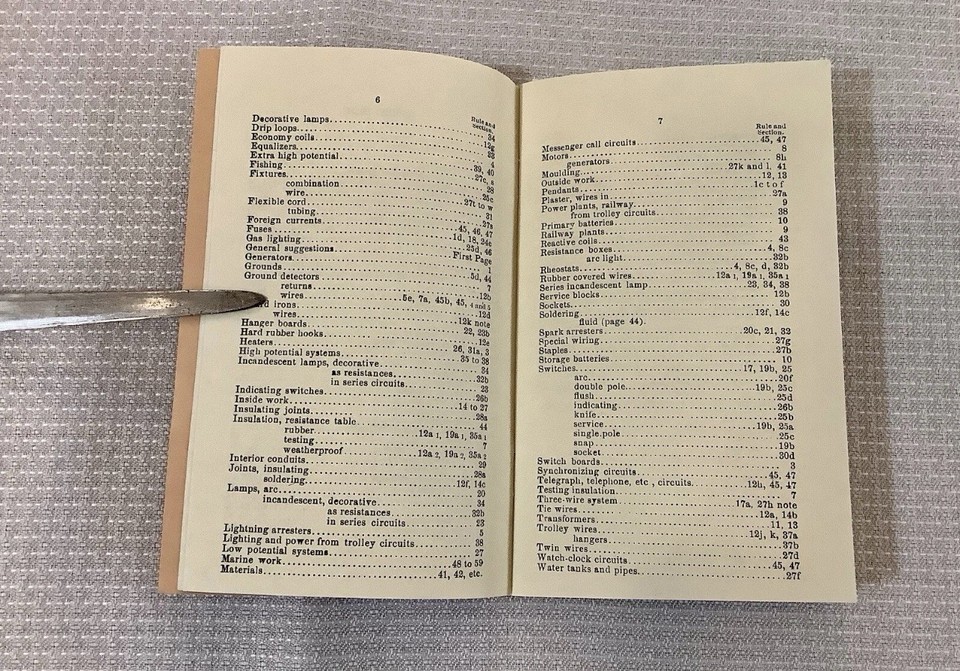 6
Rule and
Section.
Decorative lamps........34
Drip loops........12g
Economy coils........23
Equalizers........4
Extra high potential........39, 40
Fishing........27c, s
Fixtures........28
combination........25c
wire........27t to w
Flexible cord........31
tubing........27s
Foreign currents........45, 46, 47
Fuses........1d, 18, 24c
Gas lighting........25d, 46
General suggestions........First Page
Generators........1
Grounds........5d, 44
Ground detectors........7
returns........12b
wires........5e, 7a, 45b, 45, 4 and 5
rd irons........12d
wires........12k note
Hanger boards........22, 23b
Hard rubber hooks........12s
Heaters........26, 31a, 3
High potential systems........35 to 38
Incandescent lamps, decorative........34
as resistances........32b
in series circuits........23
Indicating switches........26b
Inside work........14 to 27
Insulating joints........28a
Insulation, resistance table........44
rubber........12a 1, 19a 1, 35a 1
testing........7
weatherproof........12a 2, 19a 2, 35a 2
Interior conduits........29
Joints, insulating........28a
soldering........12f, 14c
Lamps, arc........20
incandescent, decorative........34
as resistances........32b
in series circuits........23
Lightning arresters........5
Lighting and power from trolley circuits........38
Low potential systems........27
Marine work........48 to 59
Materials........41, 42, etc.
7
Rule and
Section.
Messenger call circuits........45, 47
Motors........8
generators........8h
Moulding........27k and l, 41
Outside work........12, 13
Pendants........1c to f
Plaster, wires in........27a
Power plants, railway........9
from trolley circuits........38
Primary batteries........10
Railway plants........9
Reactive coils........43
Resistance boxes........4, 8c
arc light........32b
Rheostats........4, 8c, d, 32b
Rubber covered wires........12a 1, 19a 1, 35a 1
Series incandescent lamp........23, 34, 38
Service blocks........12b
Sockets........30
Soldering........12f, 14c
fluid (page 44).
Spark arresters........20c, 21, 32
Special wiring........27g
Staples........27b
Storage batteries........10
Switches........17, 19b, 25
arc........20f
double pole........19b, 25c
flush........25d
indicating........26b
knife........25b
service........19b, 25a
single pole........25c
snap........19b
socket........30d
Switch boards........3
Synchronizing circuits........45, 47
Telegraph, telephone, etc , circuits........12h, 45, 47
Testing insulation........7
Three-wire system........17a, 27h note
Tie wires........12a, 14b
Transformers........11, 13
Trolley wires........12j, k, 37a
hangers........37b
Twin wires........27d
Watch-clock circuits........45, 47
Water tanks and pipes........27f